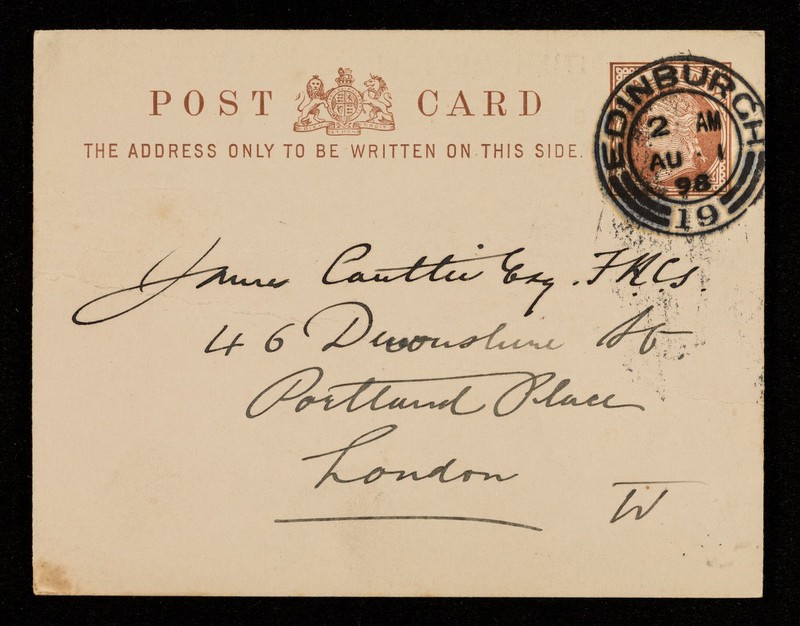 POST CARD
THE ADDRESS ONLY TO BE WRITTEN ON THIS SIDE.
EDINBURGH
2 AM
AU 1
98
19
James Cantlie Esq. F.R.C.S.
46 Devonshire St
Portland Place
London
W